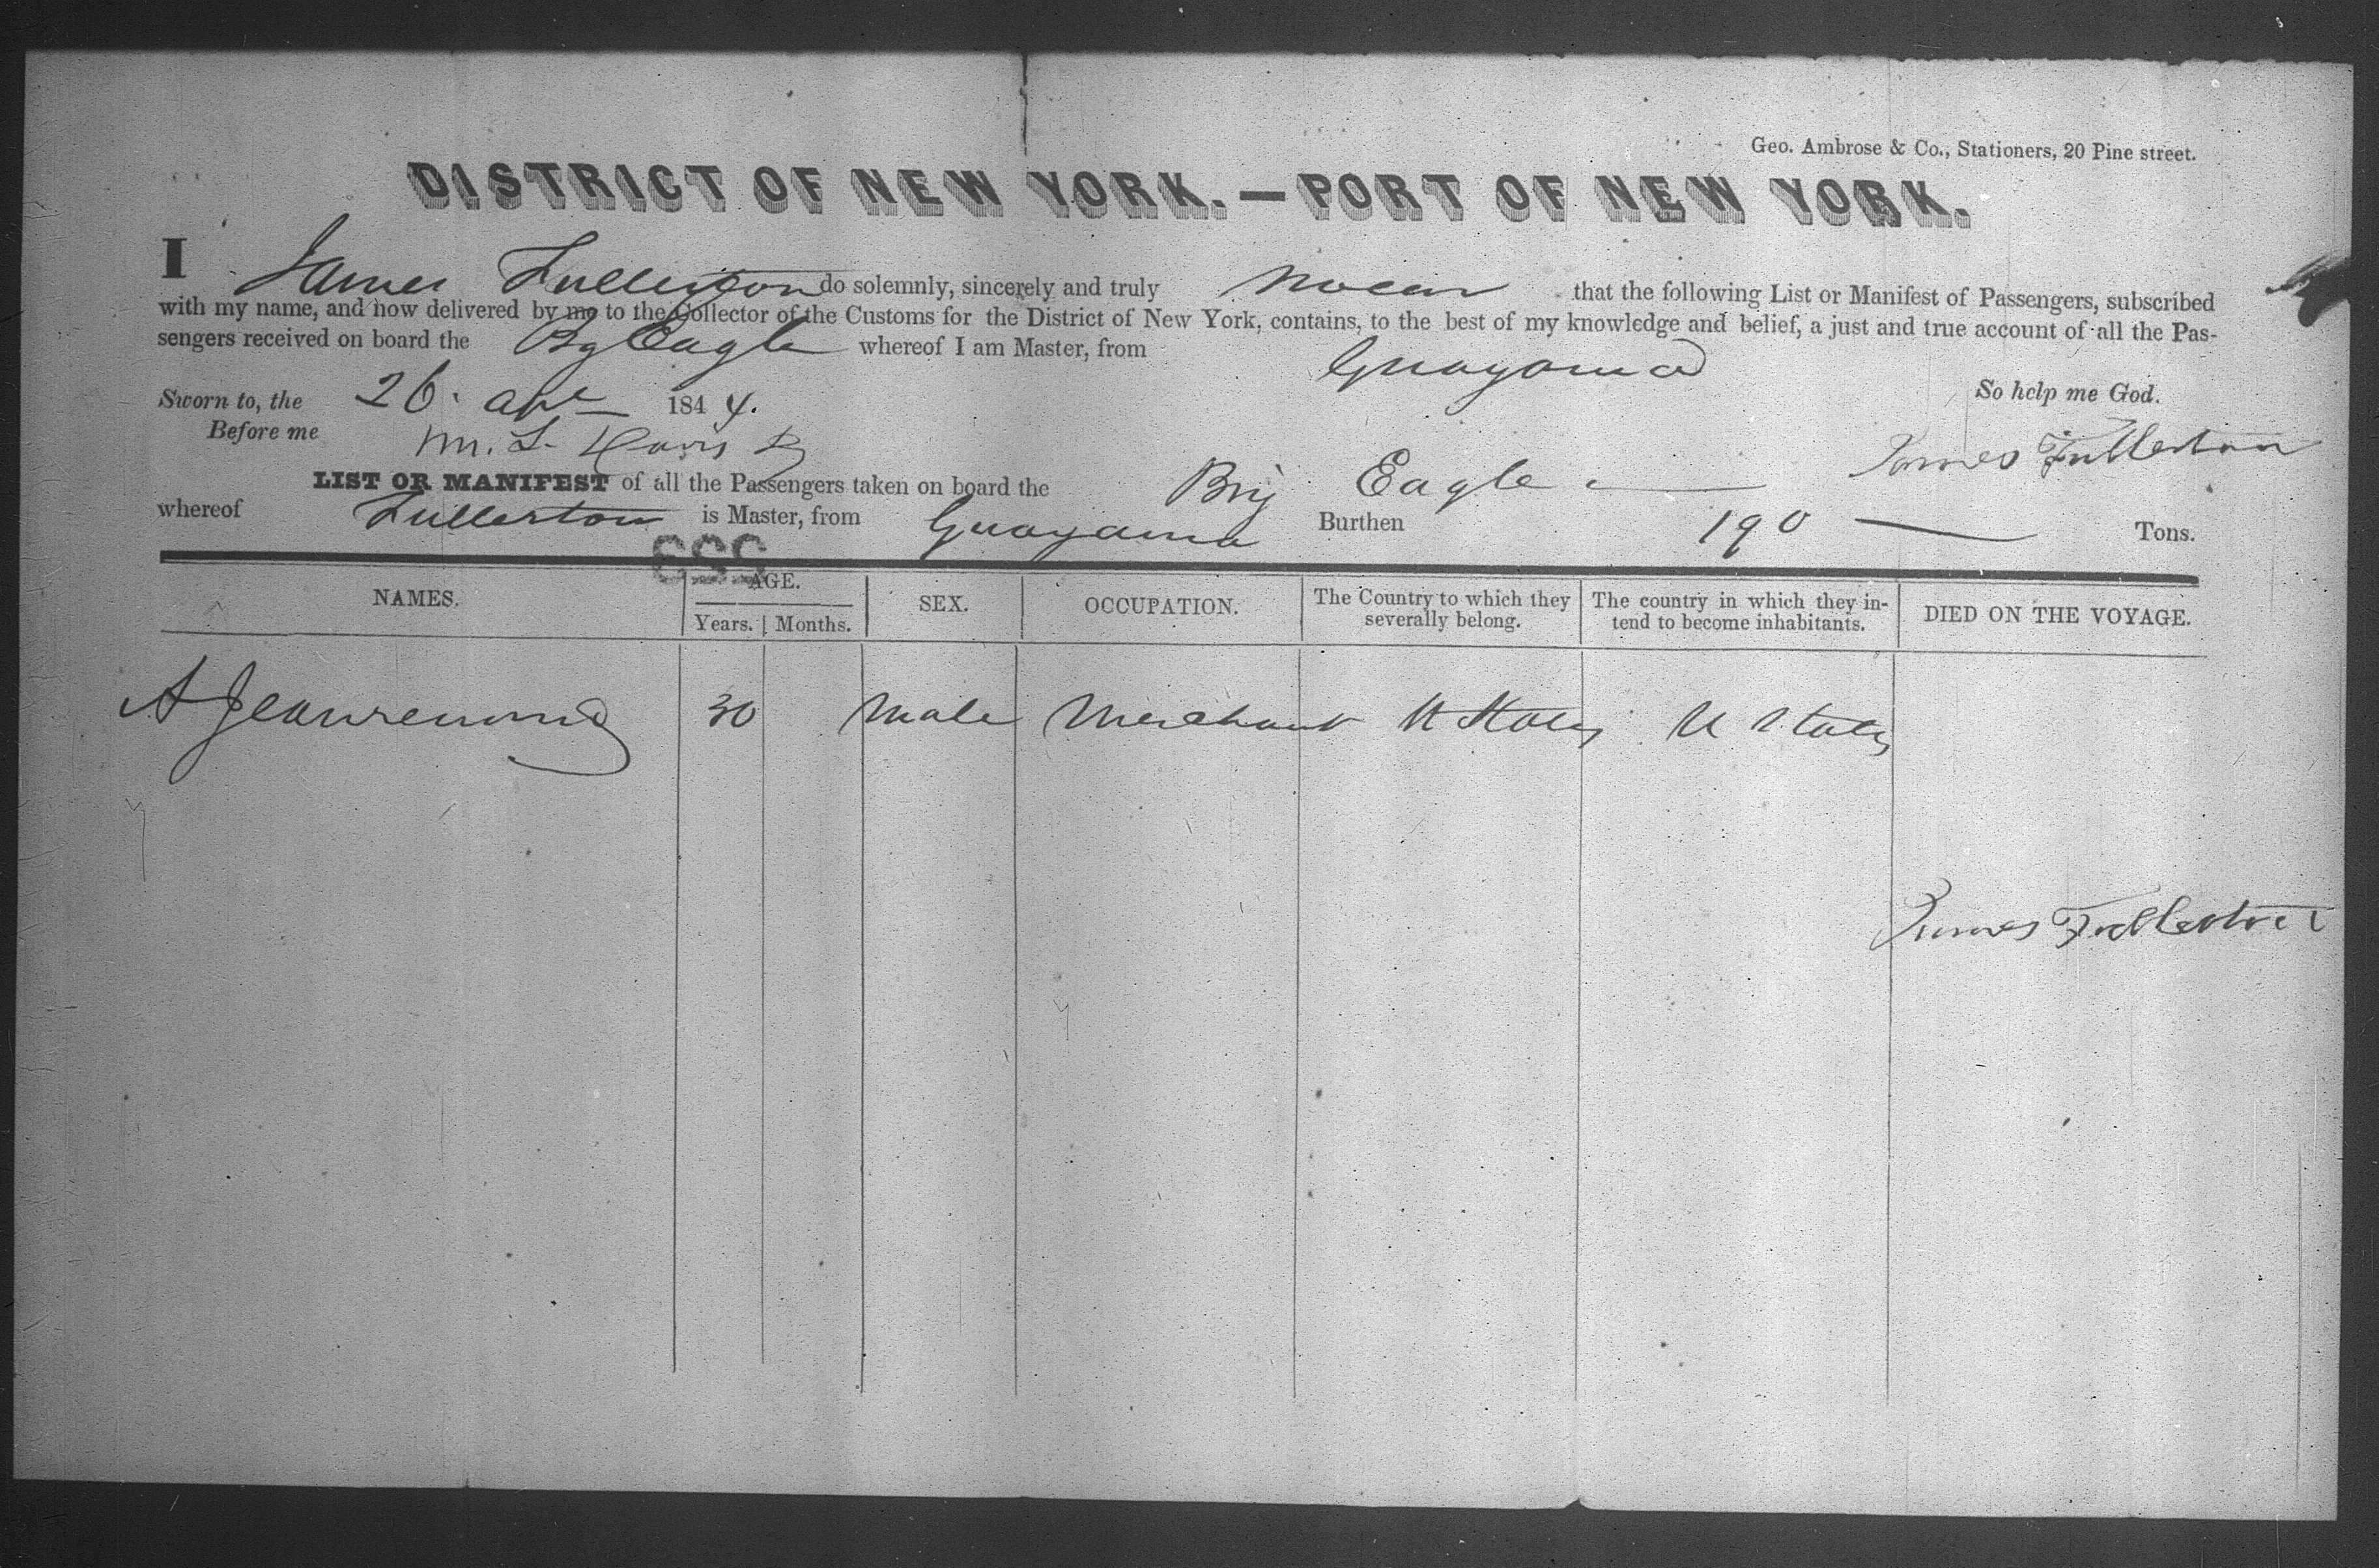 Geo. Ambrose & Co., Stationers, 20 Pine street.
DISTRICT OF NEW YORK.—PORT OF NEW YORK.
I James Fullerton do solemnly, sincerely and truly swear that the following List or Manifest of Passengers, subscribed
with my name, and now delivered by me to the Collector of the Customs for the District of New York, contains, to the best of my knowledge and belief, a just and true account of all the Pas-
sengers received on board the Bg Eagle whereof I am Master, from Guayama
Sworn to, the 26. Apl 1844. So help me God.
Before me M. L. Davis James Fullerton
LIST OR MANIFEST of all the Passengers taken on board the Brig Eagle
whereof Fullerton is Master, from Guayama Burthen 190 Tons.
NAMES. AGE. Years. Months. SEX. OCCUPATION. The Country to which they severally belong. The country in which they in-tend to become inhabitants. DIED ON THE VOYAGE.
A 30 Male Merchant U States U States
James Fullerton